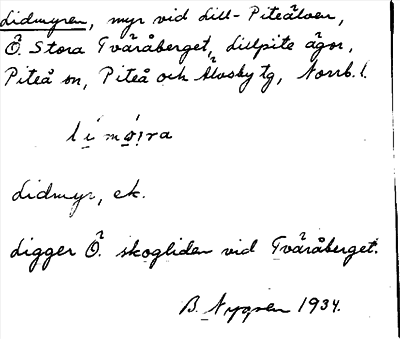 Lidmyren, myr vid Lill-Piteälven,
Ö. Stora Tväråberget, Lillpite ägor,
Piteå sn, Piteå och Älvsby tg, Norrb. l.
Lidmyr, ek.
Ligger Ö. skogliden vid Tväråberget.
B. Nygren 1934.